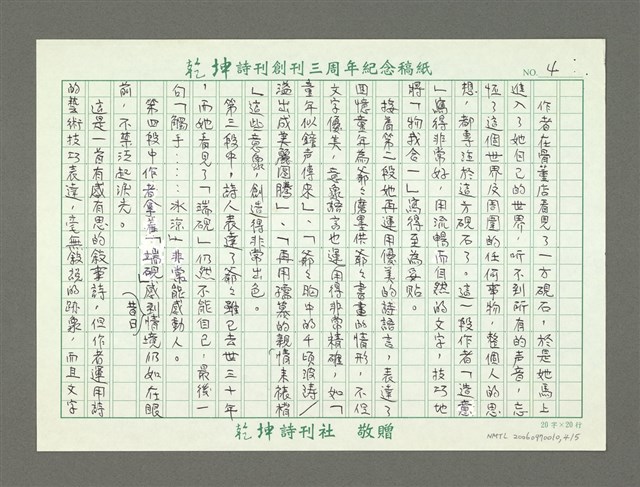 乾坤詩刊創刊三周年紀念稿紙
NO. 4
作者在骨董店看見了一方硯石，於是她馬上
進入了她自己的世界，听不到所有的声音，忘
恆了這個世界及周圍的任何事物，整個人的思
想，都專注於這方硯石了。這一段作者「造意
」寫得非常好，用流暢而自然的文字，技巧地
將「物我合一」寫得至為妥貼。
接着第二段她再運用優美的詩語言，表達了
回憶童年為爺爺磨墨供爺爺書畫的情形，不但
文字優美，意象語言也運用得非常精確，如「
童年似鐘声傳來」、「爺爺胸中的千頃波涛／
溢出成美麗图騰」、「再用孺慕的親情來裱褙
」這些意象，創造得非常出色。
第三段中，詩人表達了爺爺雖已去世三十年
，而她看見了「端硯」仍然不能自己，最後一
句「觸手……冰涼」非常能感動人。
第四段中作者拿着「端硯」感到（昔日）情境仍如在眼
前，不禁泛起淚光。
這是一首有感有思的敘事詩，但作者運用詩
的藝術技巧表達，毫無敘說的跡象，而且文字
20字×20行
乾坤詩刊社 敬贈
NMTL 20060490010,4/5